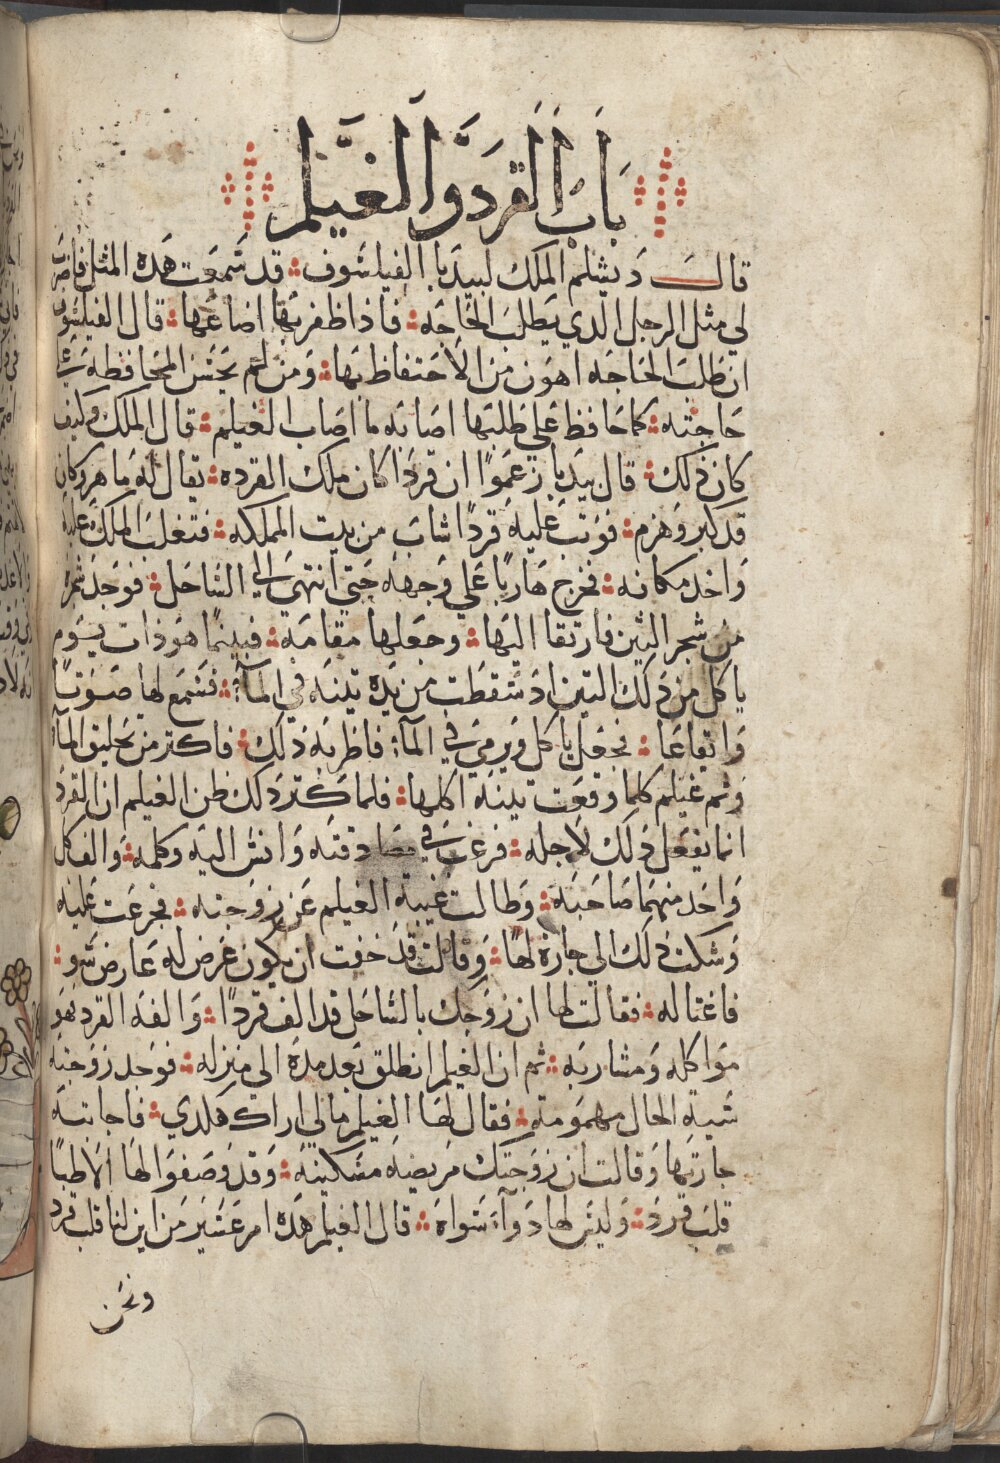 باب القرد والغيلم
قال دبشلم الملك لبيدبا الفيلسوف قد سمعت هذه المثل فاضرب
لي مثل الرجل الذي يطلب الحاجه فاذا ظفر بها اضاعها قال الفيلسوف
ان طلب الحاجه اهون من الاحتفاظ بها ومن لم يحسن المحافظه علي
حاجته كما حافظ علي طلبها اصابه ما اصاب الغيلم قال الملك وكيف
كان ذلك قال بيدبا زعموا ان قردا كان ملك القرده يقال له ماهر وكان
قد كبر وهرم فوتب عليه قردا شاب من بيت المملكه فتغلب الملك عليه
واخد مكانه فخرج هاربا علي وجهه حتي انتهى الي الساحل فوجد شجره
من شجر التين فارتقا اليها وجعلها مقامه فبينما هو ذات يوم
ياكل من ذلك التين اد سقطت من يده تينه في المآء فسمع لها صوتا
وايقاعا فجعل ياكل ويرمي في المآء فاطربه ذلك فاكتر من تحليق المآء
وتم غيلم كلما وقعت تينه اكلها فلما كتر ذلك ظن الغيلم ان القرد
انما يفعل ذلك لاجله فرغب في مصادقته وانس اليه وكلمه والف كل
واحد منهما صاحبه وطالت غيبة الغيلم عن زوجته فجزعت عليه
وشكت ذلك الي جارة لها وقالت قد خفت ان يكون عرض له عارض سو
فاغتاله فقالت لها ان زوجك بالساحل قد الف قردا والفه القرد فهو
مواكله ومشاربه تم ان الغيلم انطلق بعد مدة الي منزله فوجد زوجته
سية الحال مهمومة فقال لها الغيلم مالي اراك هكدي فاجابته
جارتها وقالت ان زوجتك مريضه مسكينة وقد وصفوا لها الاطبا
قلب قرد وليس لها دوآء سواه قال الغيلم هدا امر عسير من اين لنا قلب قرد
ونحن